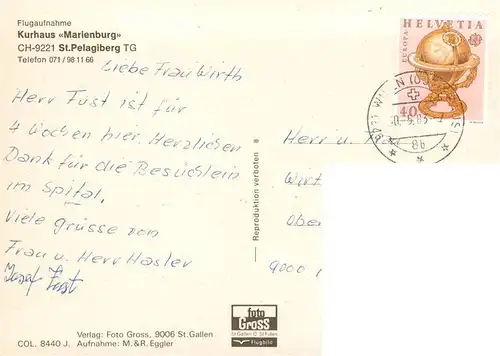 Flugaufnahme
Kurhaus «Marienburg»
CH-9221 St.Pelagiberg TG
Telefon 071/98 11 66
Liebe Frau Wirth
Herr Fust ist für
4 Wochen hier. Herzlichen
Dank für die Besüchlein
im Spital.
Viele grüsse von
Frau u. Herr Hasler
Josef Fust
Verlag: Foto Gross, 9006 St.Gallen
COL. 8440 J. Aufnahme: M.&R. Eggler
Reproduktion verboten
foto
Gross
St.Gallen
Flugbild
HELVETIA
EUROPA
40
86
Herr u.
Wirt
Ober
9000